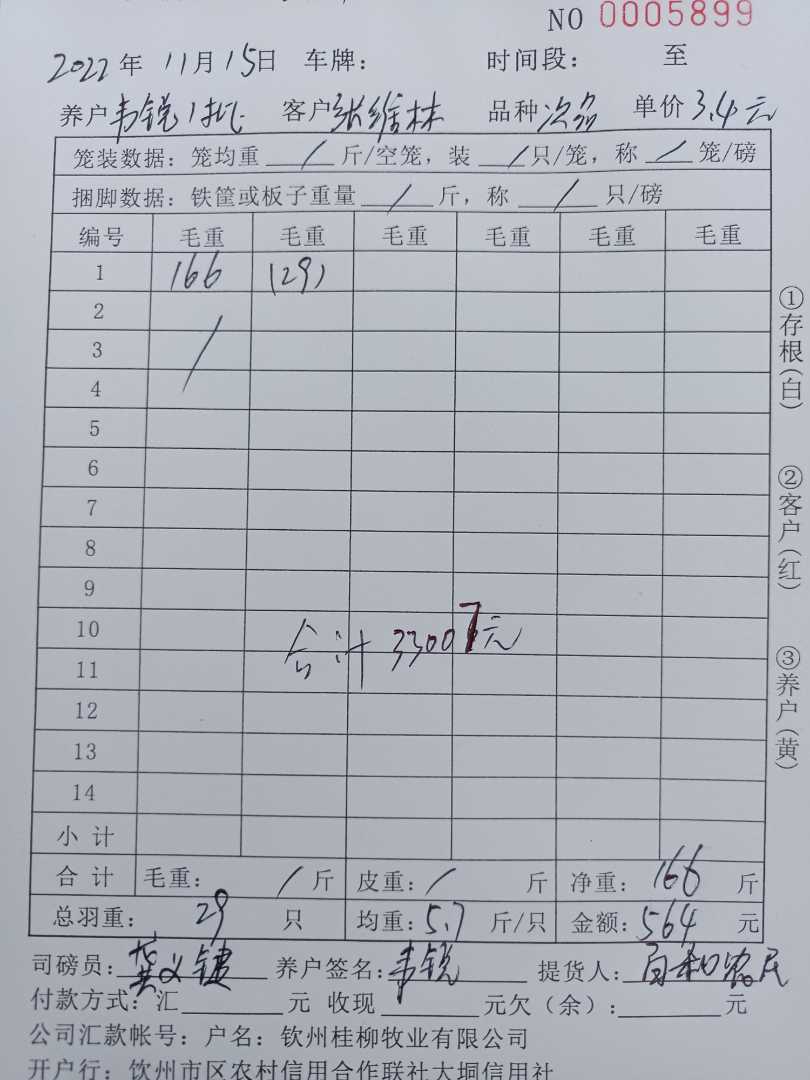 NO 0005899
2022年 11月15日 车牌： 时间段： 至
养户韦锐1批 客户张维林 品种次品 单价3.4元
笼装数据：笼均重 / 斤/空笼，装 / 只/笼，称 / 笼/磅
捆脚数据：铁筐或板子重量 / 斤，称 / 只/磅
编号 毛重 毛重 毛重 毛重 毛重 毛重
1 166 (29)
2
3 /
4
5
6
7
8
9
10
合计33007元
11
12
13
14
小计
合计 毛重： / 斤 皮重： / 斤 净重： 166 斤
总羽重： 29 只 均重：5.7 斤/只 金额：564 元
司磅员：龚义键 养户签名：韦锐 提货人：
付款方式：汇 元 收现 元欠（余）： 元
公司汇款帐号：户名：钦州桂柳牧业有限公司
开户行：钦州市区农村信用合作联社大垌信用社
①存根（白）
②客户（红）
③养户（黄）